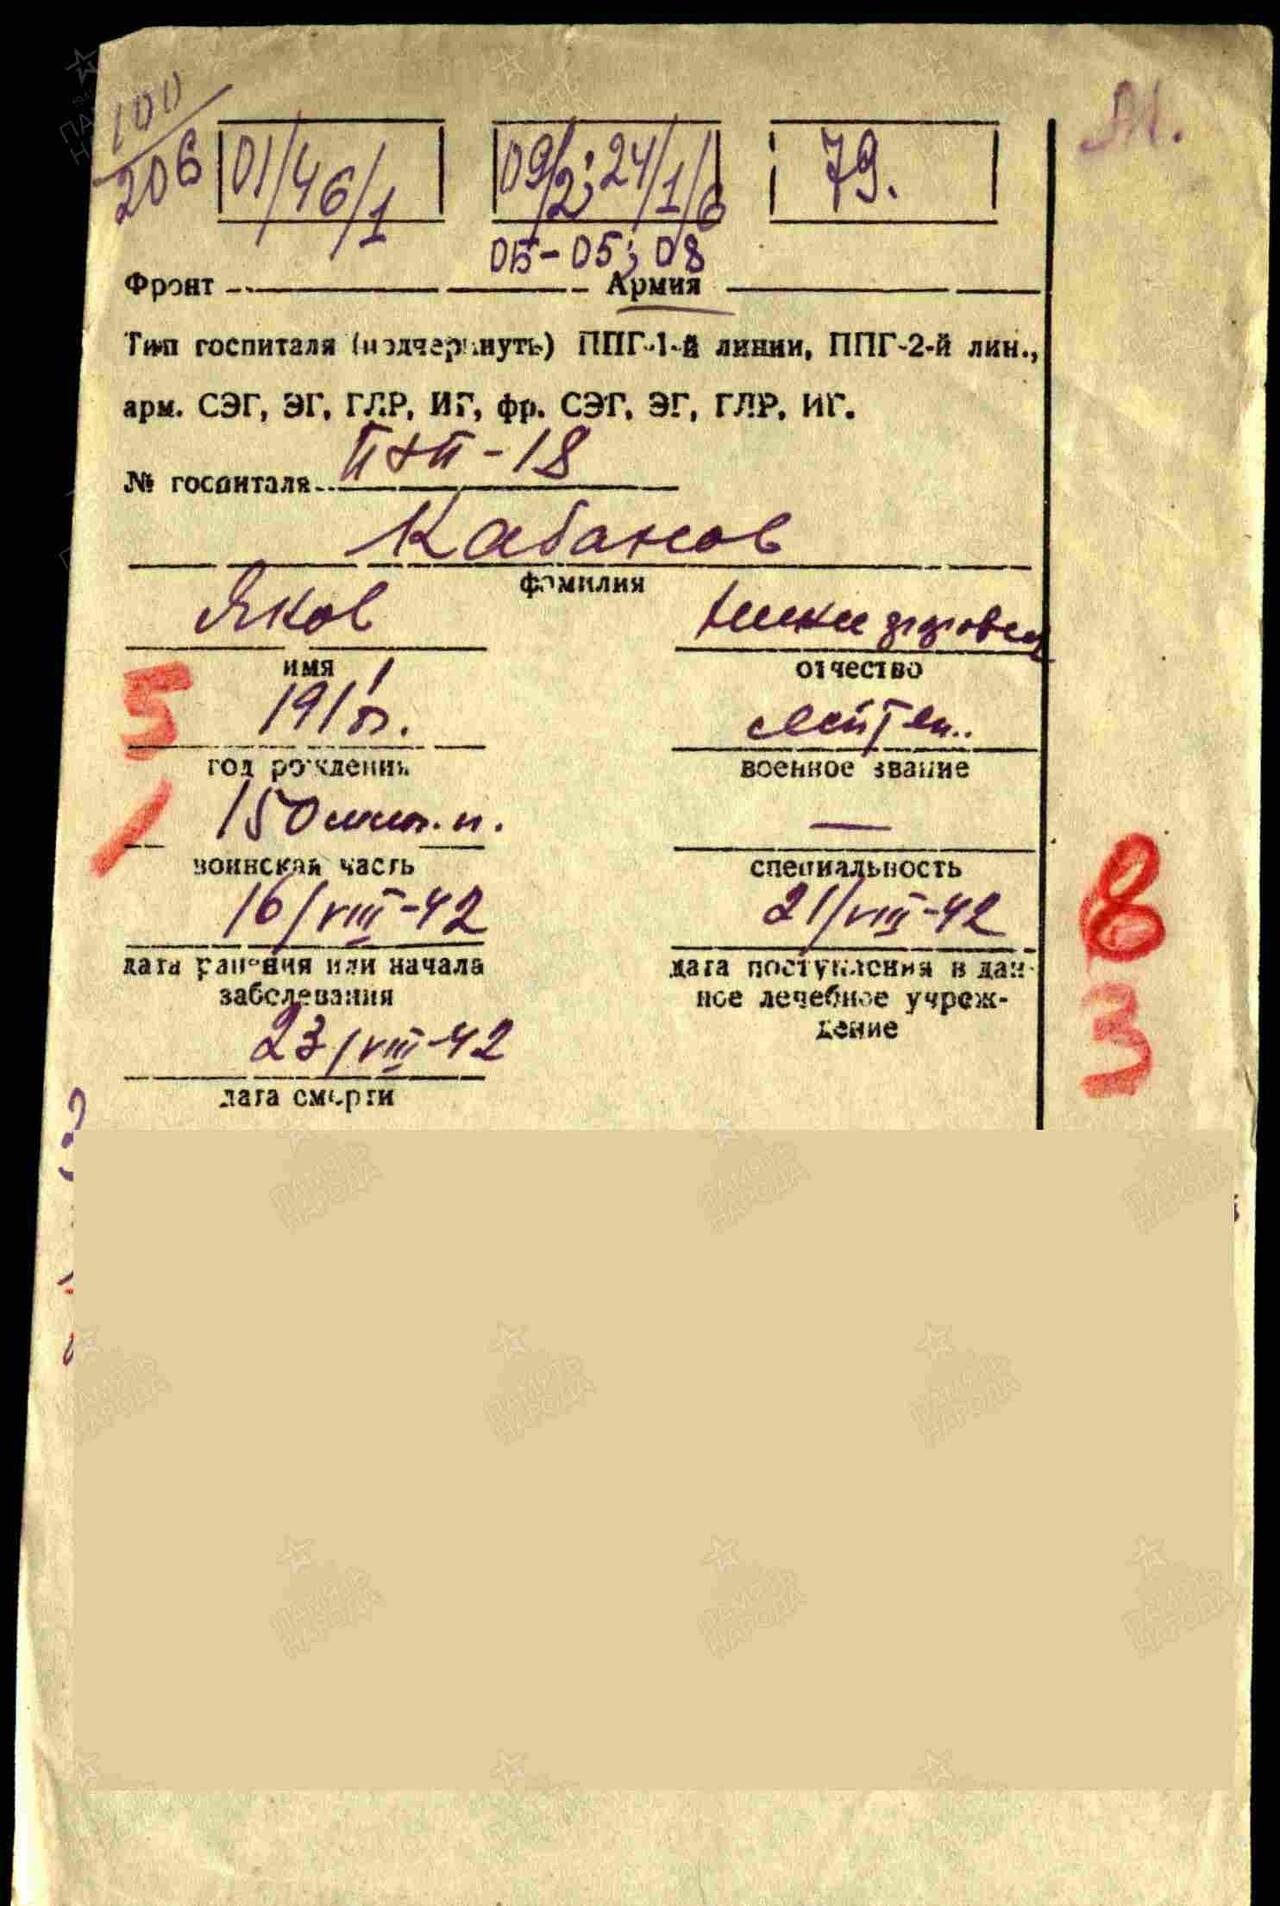 100
206
01/46/1
09/2; 24/1/6
79.
05-05; 08
Фронт Армия
Тип госпиталя (подчеркнуть) ППГ-1-й линии, ППГ-2-й лин.,
арм. СЭГ, ЭГ, ГЛР, ИГ, фр. СЭГ, ЭГ, ГЛР, ИГ.
№ госпиталя ППГ-18
Кабанов
фамилия
Яков
имя
отчество
191
год рождения
военное звание
150
воинская часть
—
специальность
16/VIII-42
21/VIII-42
дата ранения или начала
заболевания
дата поступления в дан-
ное лечебное учреж-
дение
23/VIII-42
дата смерти
5
1
8
3
ПАМЯТЬ
НАРОДА